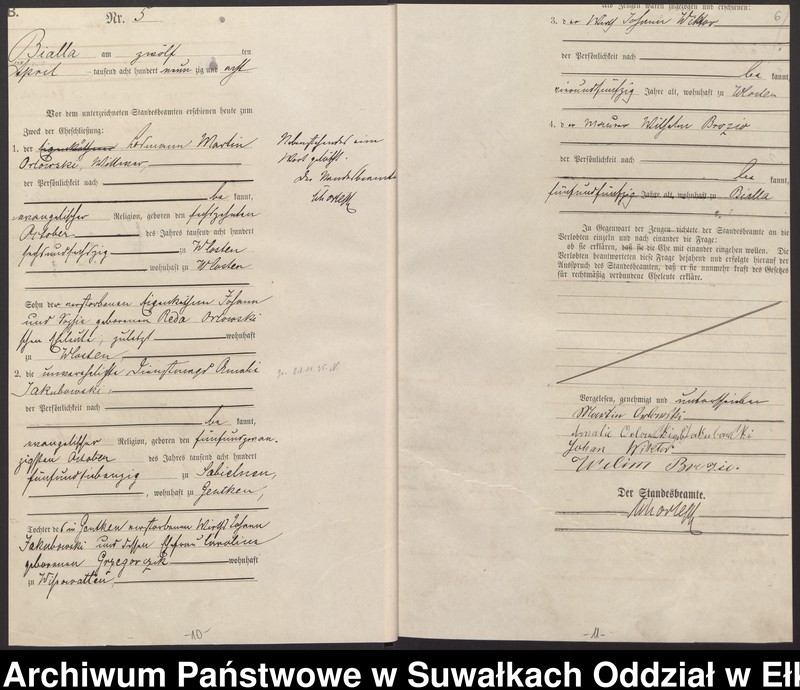 B.
Nr. 5
Bialla am zwölf ten
April tausend acht hundert neun zig und acht
Vor dem unterzeichneten Standesbeamten erschienen heute zum
Zweck der Eheschließung:
1. der Eigenkäthner Losmann Martin
Orlowski, Wittwer,
der Persönlichkeit nach
be kannt,
evangelischer Religion, geboren den sechszehnten
October des Jahres tausend acht hundert
sechsundsechszig zu Wlosten
wohnhaft zu Wlosten
Sohn der verstorbenen Eigenkäthner Johann
und Sophie geborenen Reda Orlowski
schen Eheleute, zuletzt wohnhaft
zu Wlosten
2. die unverehelichte Dienstmagd Amalie
Jakubowski
der Persönlichkeit nach
be kannt,
evangelischer Religion, geboren den fünfundzwan
zigsten October des Jahres tausend acht hundert
fünfundsiebenzig zu Sabielnen,
wohnhaft zu Gentken,
Tochter des in Gentken verstorbenen Wirths Johann
Jakubowski und dessen Ehefrau Caroline
geborenen Grzegorczik wohnhaft
zu
Nebenstehendes ein
Wort gelöscht.
Der Standesbeamte
-10-
als Zeugen waren zugezogen und erschienen:
6
3. der Wirth Johann Wiktor
der Persönlichkeit nach
be kannt,
vierundfünfzig Jahre alt, wohnhaft zu Wlosten
4. der Maurer Wilhelm Brozio
der Persönlichkeit nach
be kannt,
fünfundfünfzig Jahre alt, wohnhaft zu Bialla
In Gegenwart der Zeugen richtete der Standesbeamte an die
Verlobten einzeln und nach einander die Frage:
ob sie erklären, daß sie die Ehe mit einander eingehen wollen. Die
Verlobten beantworteten diese Frage bejahend und erfolgte hierauf der
Ausspruch des Standesbeamten, daß er sie nunmehr kraft des Gesetzes
für rechtmäßig verbundene Eheleute erkläre.
Vorgelesen, genehmigt und unterschrieben
Martin Orlowski
Amalie Orlowski geb Jakubowski
Johan Wiktor
Wilim Brozio.
Der Standesbeamte.
-11-
Archiwum Państwowe w Suwałkach Oddział w Ełk